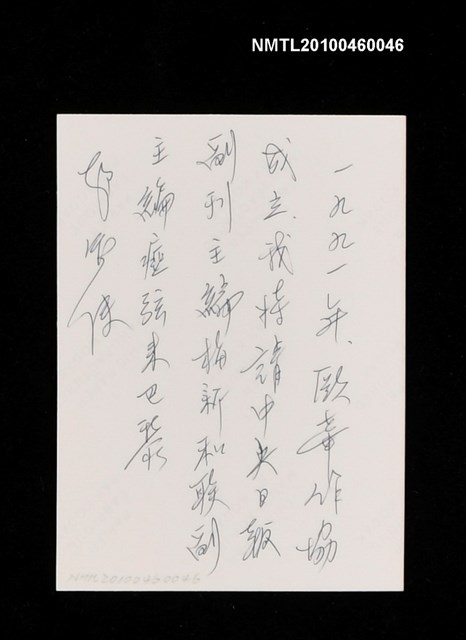 NMTL20100460046
一九九一年、欧華作協
成立、我特請中央日報
副刊主編梅新和联副
主編瘂弦来巴黎
NMTL20100460046